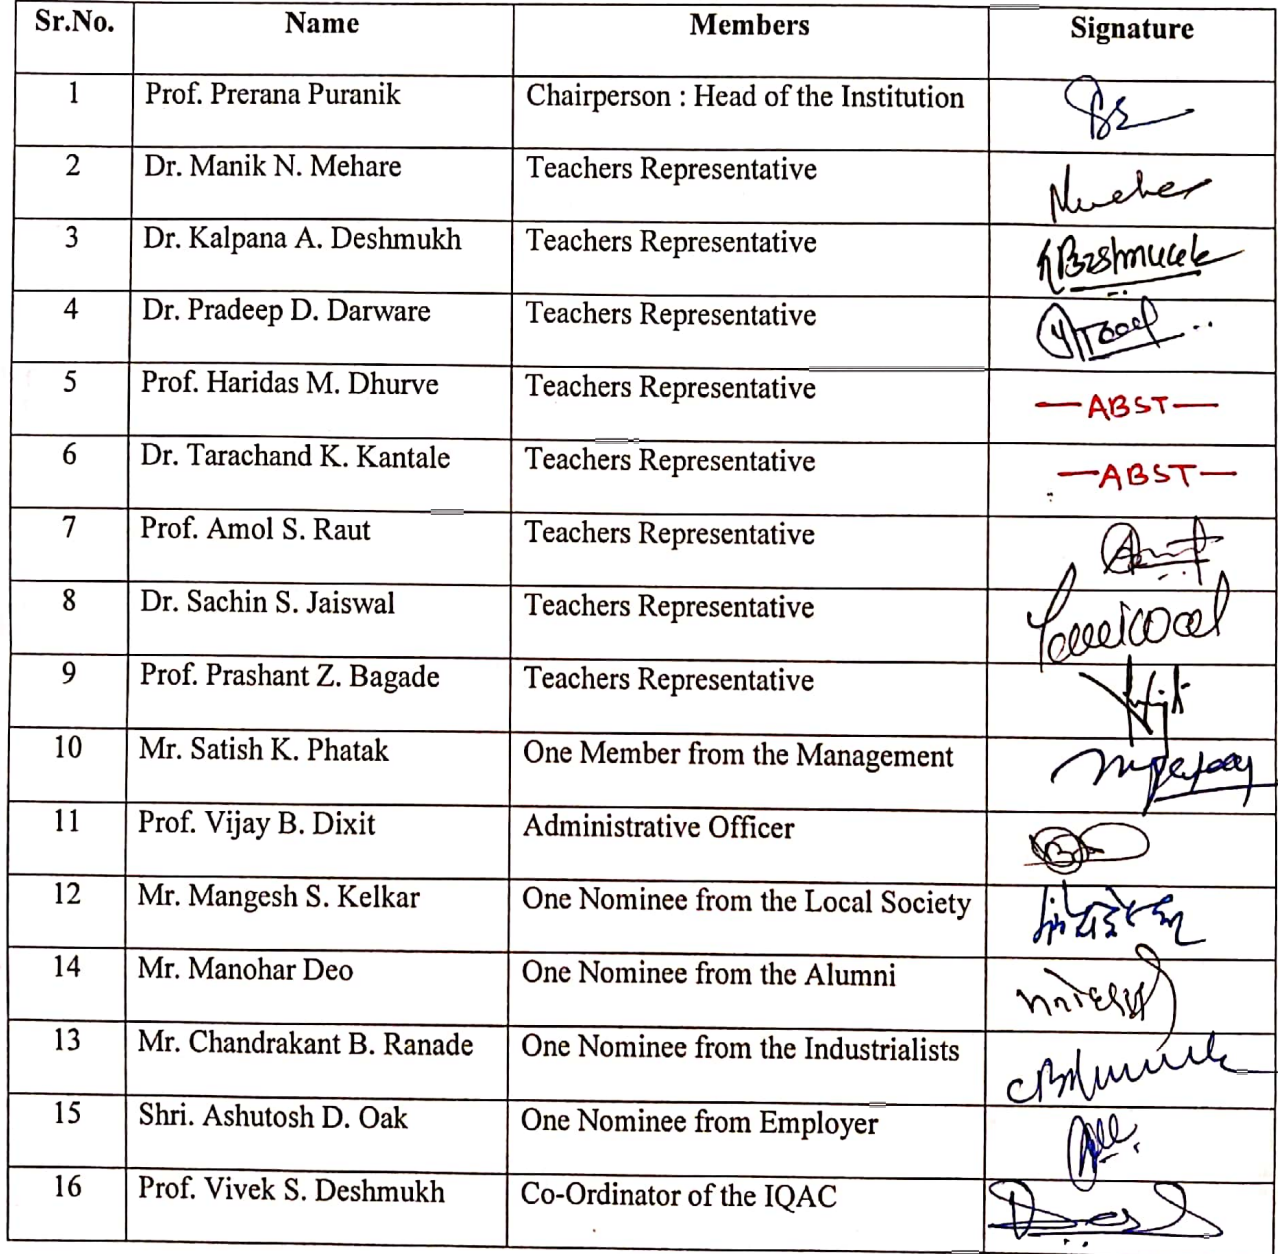 Sr.No. Name Members Signature
1 Prof. Prerana Puranik Chairperson : Head of the Institution
2 Dr. Manik N. Mehare Teachers Representative
3 Dr. Kalpana A. Deshmukh Teachers Representative
4 Dr. Pradeep D. Darware Teachers Representative
5 Prof. Haridas M. Dhurve Teachers Representative —ABST—
6 Dr. Tarachand K. Kantale Teachers Representative —ABST—
7 Prof. Amol S. Raut Teachers Representative
8 Dr. Sachin S. Jaiswal Teachers Representative
9 Prof. Prashant Z. Bagade Teachers Representative
10 Mr. Satish K. Phatak One Member from the Management
11 Prof. Vijay B. Dixit Administrative Officer
12 Mr. Mangesh S. Kelkar One Nominee from the Local Society
14 Mr. Manohar Deo One Nominee from the Alumni
13 Mr. Chandrakant B. Ranade One Nominee from the Industrialists
15 Shri. Ashutosh D. Oak One Nominee from Employer
16 Prof. Vivek S. Deshmukh Co-Ordinator of the IQAC